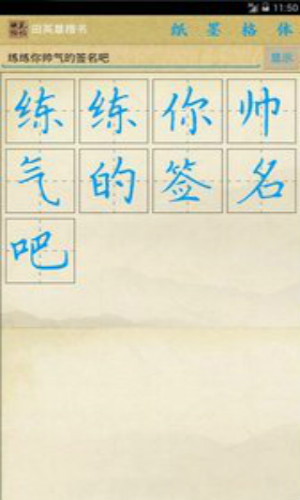 11:50
田英章楷书 纸 墨 格 体
练练你帅气的签名吧 显示
练练你帅
气的签名
吧